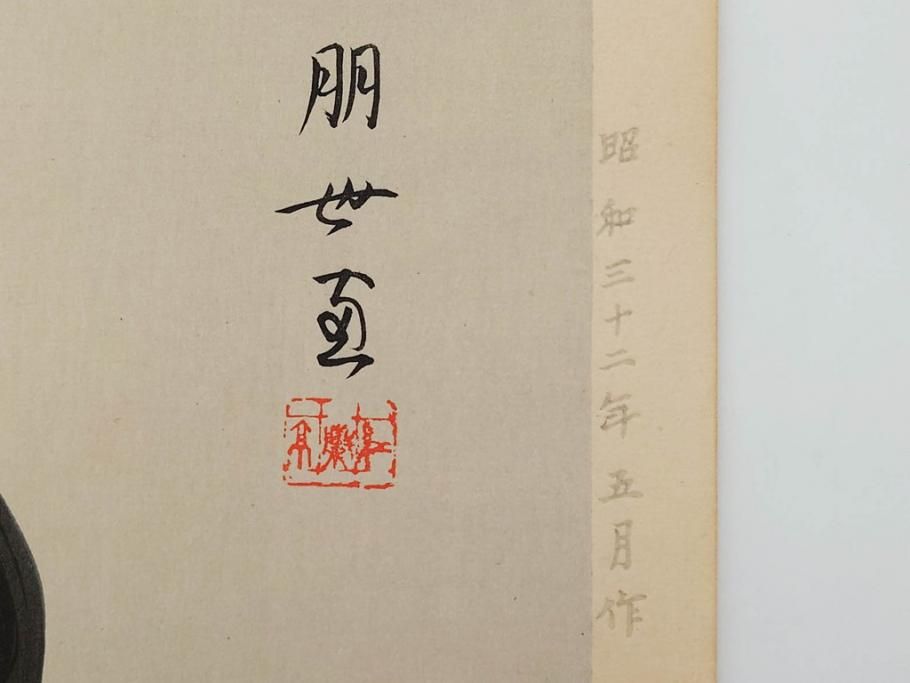 昭和三十二年 五月作
朋世画